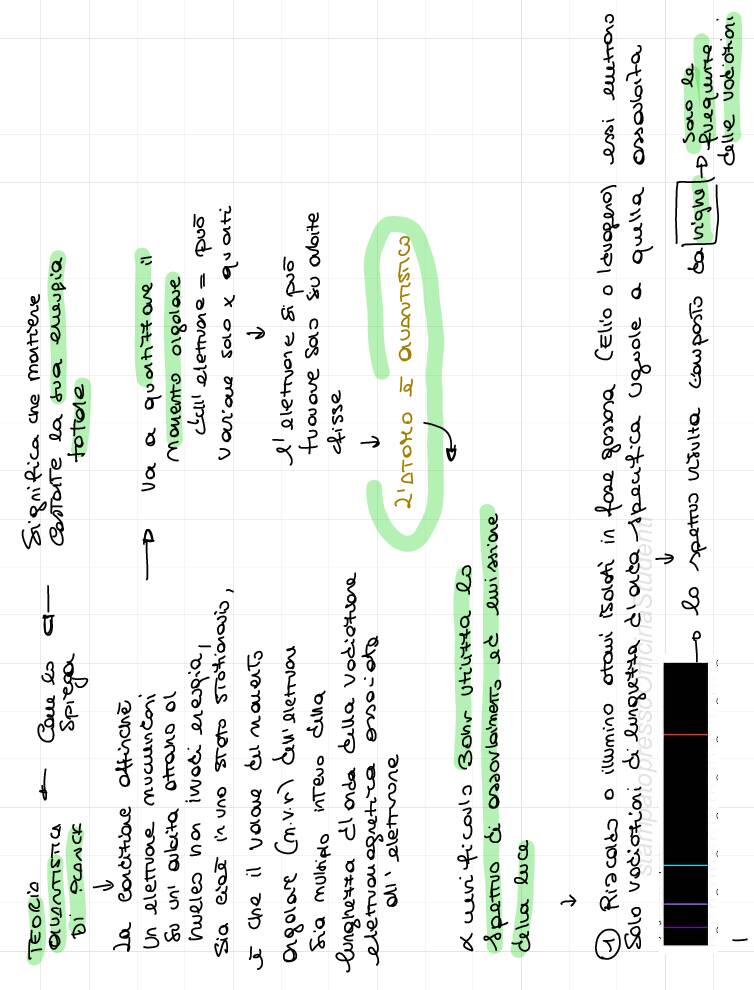 TEORIA
QUANTISTICA
DI PLANCK
Come lo
spiega
Significa che mantiene
costante la sua energia
totale
La condizione affinché
un elettrone muovendosi
su un'orbita attorno al
nucleo non irradi energia,
sia cioè in uno stato stazionario,
è che il valore del momento
angolare (m.v.r) dell'elettrone
sia multiplo intero della
lunghezza d'onda della radiazione
elettromagnetica associata
all'elettrone
va a quantizzare il
momento angolare
dell'elettrone = può
variare solo x quanti
l'elettrone si può
trovare solo su orbite
fisse
L'ATOMO È QUANTISTICO
x verificarlo Bohr utilizza lo
spettro di assorbimento ed emissione
della luce
1 Riscaldo o illumino atomi isolati in fase gassosa (Elio o Idrogeno) essi emettono
solo radiazioni di lunghezza d'onda specifica uguale a quella assorbita
lo spettro risulta composto da righe
sono le
frequenze
delle radiazioni
stampatopressoOfficinaStudenti
1